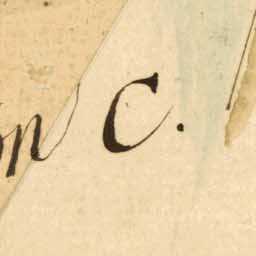 on C.